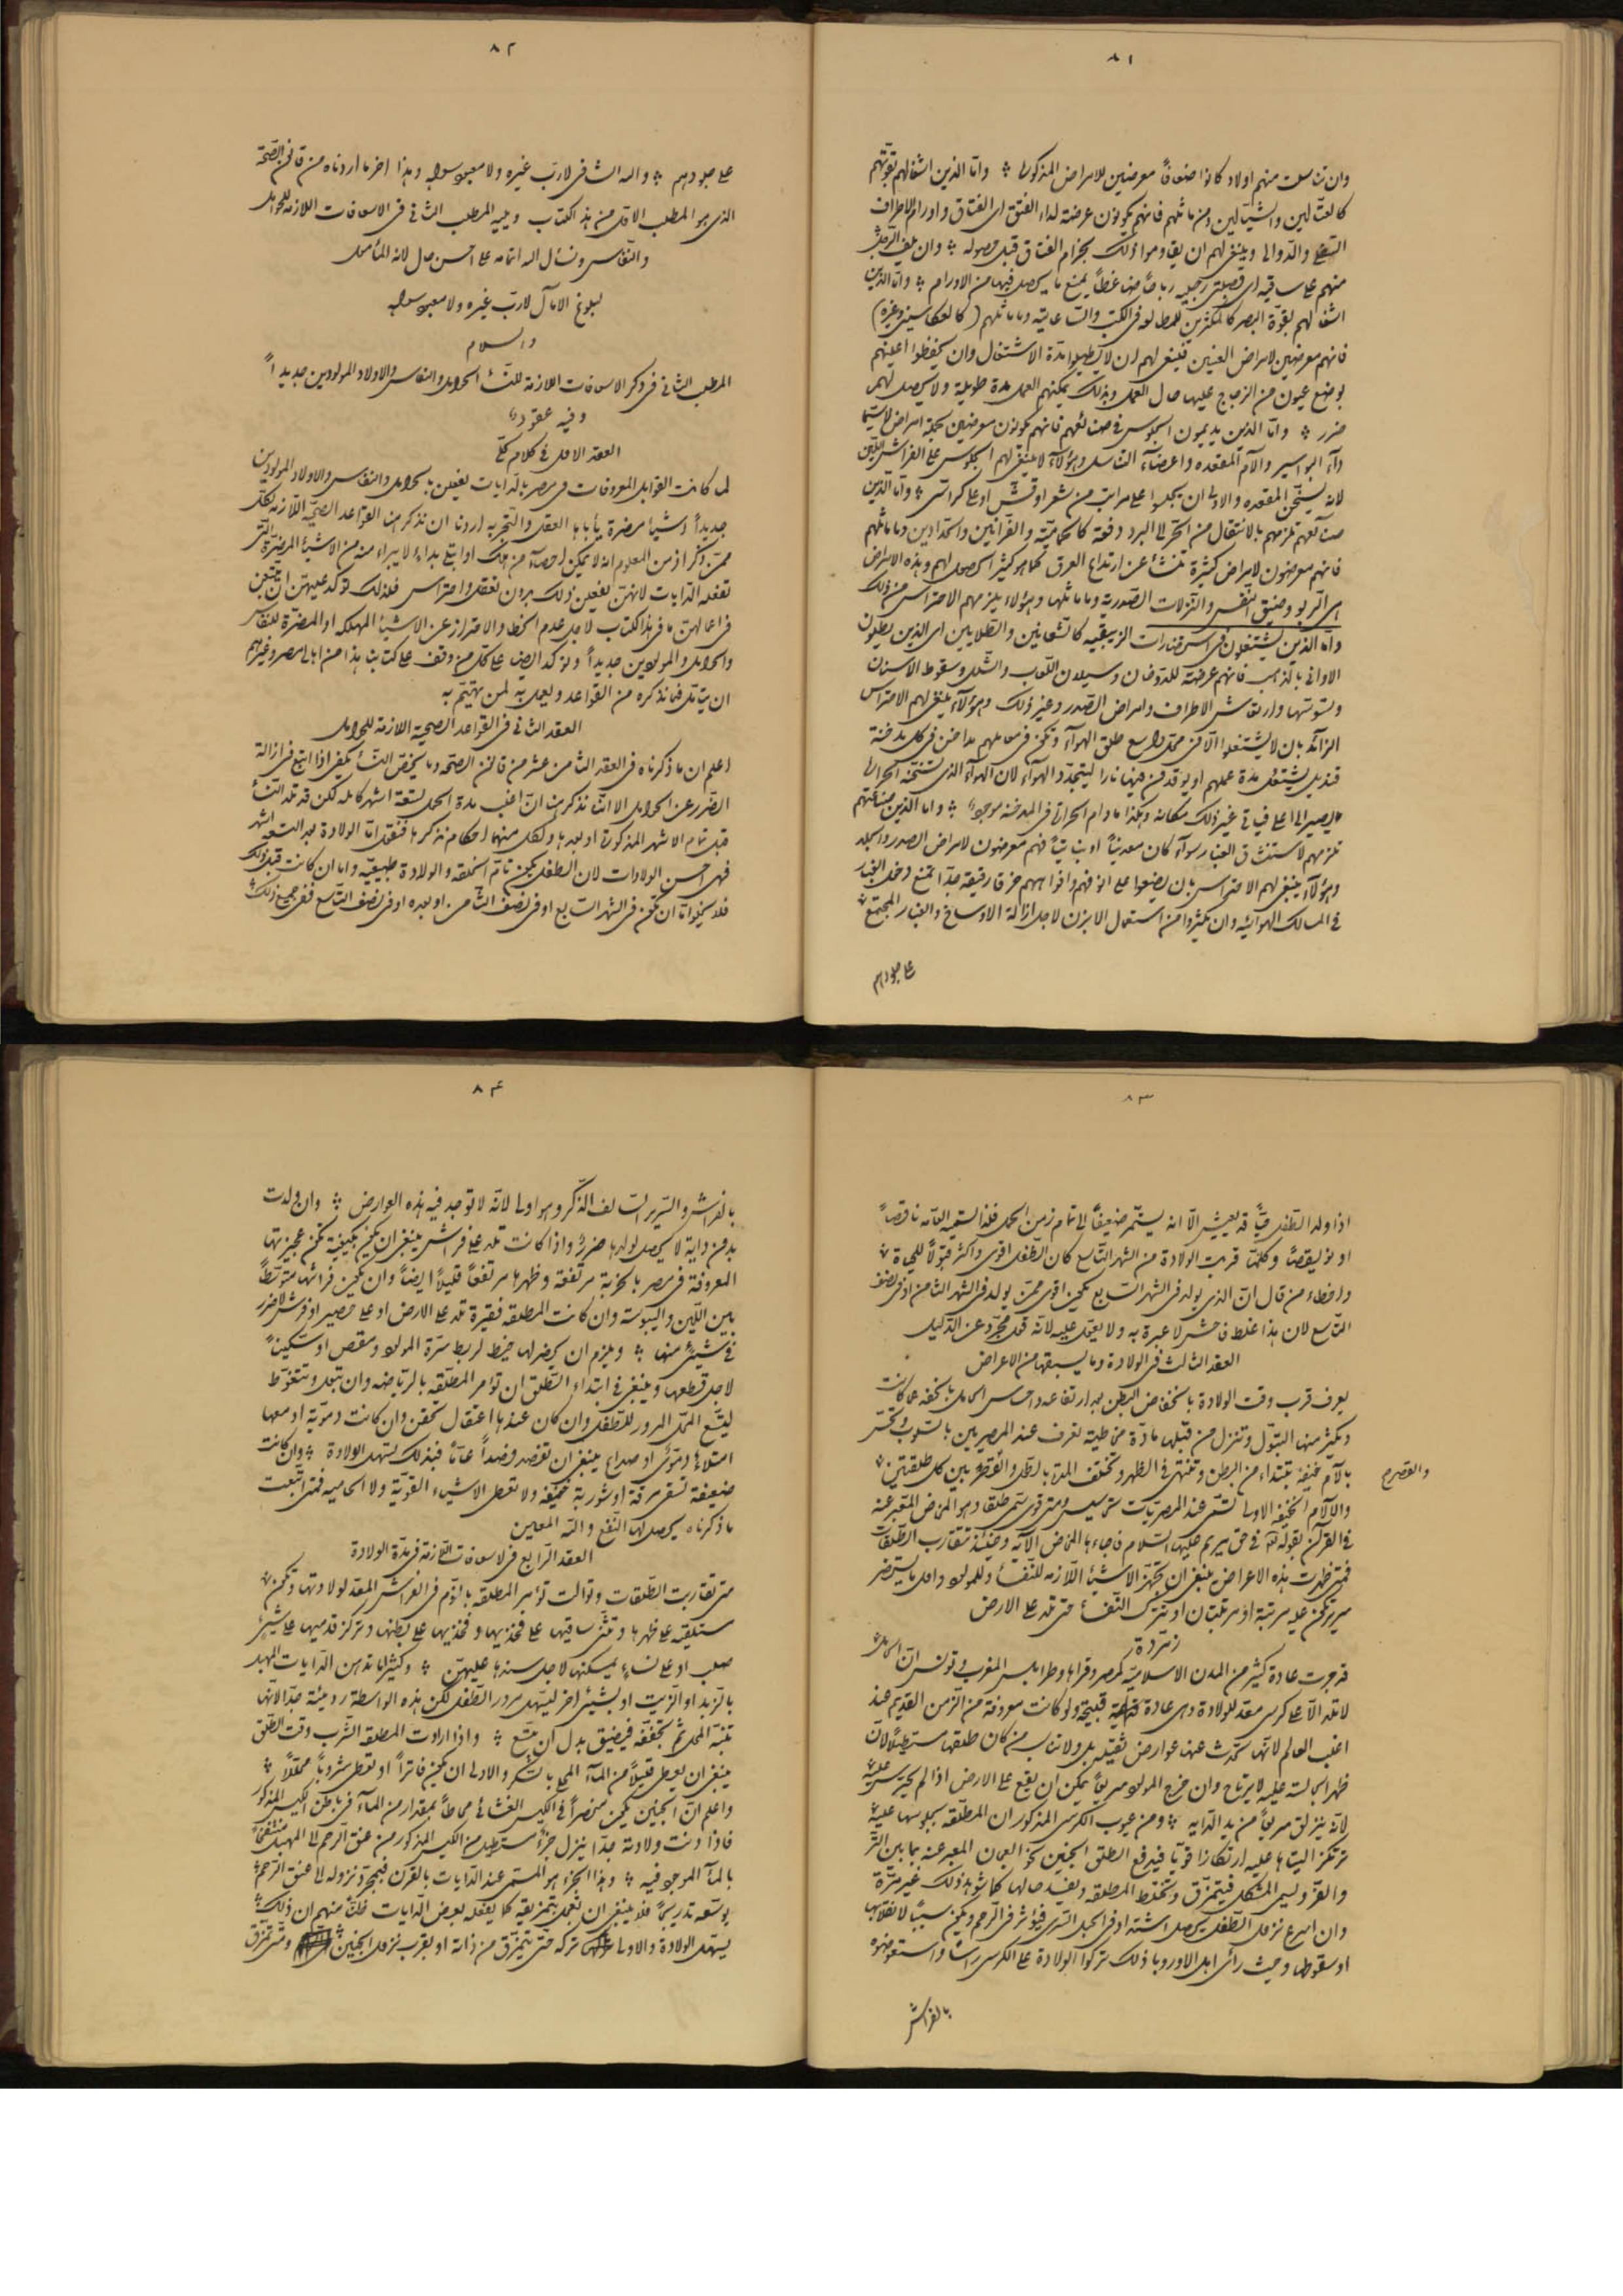 ٨١
وان تناسلت منهم اولاد كانوا ضعافاً معرضين للامراض المذكورة واما الذين اشغالهم بقوتهم
كالعتّالين والشيّالين ومن ماثلهم فانهم يكونون عرضة لداء الفتق اى الفتاق واورام الاطراف
السفلى والدوالى وينبغى لهم ان يقاوموا ذلك بحزام الفتاق قبل حصوله وان يلف الرجل
منهم على ساقيه اى قصبتى رجليه رباطاً ضاغطاً يمنع ما يحصل فيها من الاورام واما الذين
اشغالهم بقوة البصر كالمكثرين للمطالعة فى الكتب والساعاتية وما ماثلهم
فانهم معرضين لامراض العينين فينبغى لهم ان لا يطيلوا مدة الاشتغال وان يحفظوا اعينهم
بوضع عيون من الزجاج عليها حال العمل وبذلك يمكنهم العمل مدة طويلة ولا يحصل لهم
ضرر واما الذين يديمون الجلوس فى صنائعهم فانهم يكونون معرضين لجملة امراض لاسيما
داء البواسير والآم المقعده واعضاء التناسل وهؤلاء لا ينبغى لهم الجلوس على الفراش اللين
لانه يسخّن المقعده والاولى ان يجلسوا على مراتب من شعر او قش او على كراسى واما الذين
صنائعهم تلزمهم بالانتقال من الحر الى البرد دفعة كالحماميّة والفرّانين والحدادين وما ماثلهم
فانهم معرضون لامراض كثيرة تنشأ عن ارتداع العرق كما هو كثير الحصول لهم وهذه الامراض
هى الربو وضيق النفس والنزلات الصدرية وما ماثلها وهؤلاء يلزمهم الاحتراس من ذلك
واما الذين يشتغلون فى استحضارات الزيبقيه كالنحاسين والطلايين اى الذين يطلون
الاوانى بالذهب فانهم عرضة للدوخان وسيلان اللعاب والشلل وسقوط الاسنان
وتسوسها وارتعاش الاطراف وامراض الصدر وغير ذلك وهؤلاء ينبغى لهم الاحتراس
الزائد بان لا يشتغلوا الا فى محل واسع طلق الهواء وتكن فى معاملهم مداخن فى كل مدخنة
قنديل يشتعل مدة عملهم او يوقدون فيها نارا ليتجدد الهواء لان الهواء الذى تسخنه الحرارة
يصير الى اعلى فياتى غيره لك مكانه وهكذا ما دام الحرارة فى المدخنة موجوده واما الذين صناعتهم
تلزمهم لاستنشاق الغبار سواء كان معدنياً او نباتياً فهم معرضون لامراض الصدر والجلد
وهؤلاء ينبغى لهم الاحتراس بان يضعوا على انوفهم وافواههم خرقا رقيقة جدا تمنع دخول الغبار
فى المسالك الهوائيه وان يكثروا من استعمال الابزن لاجل ازالة الاوساخ والغبار المجتمع
على جلودهم
٨٢
على جلودهم والله الشافى لا رب غيره ولا معبود سواه وهذا اخر ما اردناه من قانون الصحة
الذى هو المطلب الاول من هذا الكتاب ويليه المطلب الثانى فى الاسعافات اللازمة للحوامل
والنفاس ونسأل الله اتمامه على احسن حال لانه المأمول
لبلوغ الآمال لا رب غيره ولا معبود سواه
والسلام
المطلب الثانى فى ذكر الاسعافات اللازمة للنساء الحوامل والنفاس والاولاد المولودين جديداً
وفيه عقود
العقد الاول فى كلام كلّى
لما كانت القوابل المعروفات فى مصر بالدايات يفعلن بالحوامل والنفاس والاولاد المولودين
جديداً اشيا مضرة يأباها العقل والتجربه اردنا ان نذكر هنا القواعد الصحية اللازمة لكل
ممن ذكر اذ من المعلوم انه لا يمكن احصاء من هلك او ابتلى بداء لا يبراء منه من الاشياء المضرة التى
تفعله الدايات لانهن يفعلن ذلك بدون تعقل واحتراس فلذلك نوكد عليهن ان يتبعن
فى اعمالهن ما فى هذا الكتاب لاجل عدم الخطا والاحتراز عن الاشياء المهلكه او المضرة للنفاس
والحوامل والمولودين جديداً ونوكد ايضا على كل من وقف على كتابنا هذا من اهالى مصر وغيرهم
ان يتأمل فيما نذكره من القواعد ويعمل به لمن يهتم به
العقد الثانى فى القواعد الصحية اللازمة للحوامل
اعلم ان ما ذكرناه فى العقد الثامن عشر من قانون الصحه وما يخص النساء يكفى اذا اتبع فى ازالة
الضرر عن الحوامل الا اننا نذكر هنا ان اغلب مدة الحمل تسعة اشهر كامله لكن قد تلد النساء
قبل تمام الاشهر المذكورة او بعدها ولكل منهما احكام نذكرها فنقول اما الولادة بعد التسعة اشهر
فهى احسن الولادات لان الطفل يكون تام الخلقه والولادة طبيعيّه واما ان كانت قبل ذلك
فلا يخلو اما ان تكون فى الشهر السابع او فى نصف الثامن او بعده او فى نصف التاسع ففى جميع ذلك
٨٣
اذا ولد الطفل حيّاً قد يعيش الا انه يستمر ضعيفاً الى تمام زمن الحمل فلذا تسميه العامه ناقصاً
او نو يقصاً وكلما قربت الولادة من الشهر التاسع كان الطفل اقوى واكثر قبولاً للحياة
واخطاء من قال ان الذى يولد فى الشهر السابع يكون اقوى ممن يولد فى الشهر الثامن او فى نصف
التاسع لان هذا غلط فاحش لا عبرة به ولا يعول عليه لانه قول مجرد عن الدليل
العقد الثالث فى الولادة وما يسبقها من الاعراض
يعرف قرب وقت الولادة بانخفاض البطن بعد ارتفاعه واحساس الحامل بالخفه عما كانت
ويكثر منها التبوّل وتنزل من قبلها مادة مخاطية تعرف عند المصريين بالسلوب وتحس
بالآم خفيفة تبتداء من البطن وتنتهى فى الظهر وتختلف المدة بالطول والقصر بين كل طلقتين
والقصر م
والآلام الخفيفة الاولى تسمى عند المصريات تحسيس ومتى قوى تسمى طلقا وهو المخاض المعبر عنه
فى القرآن بقوله تعالى فى حق مريم عليها السلام فاجاءها المخاض الآية وحينئذ تتقارب الطلقات
فمتى ظهرت هذه الاعراض ينبغى ان تجهز الاشياء اللازمه للنفساء وللمولود واول ما يستحضر
سرير تكون عليه مرتبة او مرتبتان او يترك النفساء حتى تلد على الارض
زمردة
قد جرت عادة كثير من المدن الاسلامية كمصر وقراها وطرابلس المغرب وتونس ان الحامل
لا تلد الا على كرسى معد للولادة وهى عادة قبيحة ولو كانت معروفة من الزمن القديم عند
اغلب العالم لانها تحدث عنها عوارض ثقيله بل ولا تناسب من كان طلقها مستطيلاً لان
ظهر الجالسة عليه لا يرتاح وان خرج المولود سريعاً يمكن ان يقع على الارض اذا لم يحترس عليه
لانه ينزلق سريعاً من يد الدايه ومن عيوب الكرسى المذكور ان المطلقة بجلوسها عليه
ترتكز اليتاها عليه ارتكازا قويا فيدفع الطلق الجنين نحو العجان المعبر عنه بما بين السر
والعزوليس المشكل فيتمزق وتختلط المطلقه ويفسد حالها كما شوهد ذلك غير مرة
وان اسرع نزول الطفل يحصل اشتداد فى الحبل السرى فيؤثر فى الرحم ويكون سببا لانقلابها
او سقوطها وحيث رأى اهل الاوروبا ذلك تركوا الولادة على الكرسى راسا واستعوضوه
بالفراش
٨۴
بالفراش والسرير السالف الذكر وهو اولى لانه لا توجد فيه هذه العوارض وان ولدت
بدون داية لا يحصل لولدها ضررٌ واذا كانت تلد على فراش ينبغى ان يكون بكيفية تكون عجيزتها
المعروفة فى مصر بالحزبة مرتفعة وظهرها مرتفعاً قليلاً ايضاً وان يكون فراشها متوسطاً
بين اللين واليبوسة وان كانت المطلقه فقيرة تلد على الارض او على حصير او فرش لا ضرر
فى شيئ منها ويلزم ان يحضر لها خيط لربط سرّة المولود ومقص او سكيناً
لاجل قطعها وينبغى فى ابتداء الطلق ان تؤمر المطلقه بالرياضه وان تبول وتتغوّط
ليتسع المحل المرور للطفل وان كان عندها اعتقال تحقن وان كانت دمويّة او معها
امتلاءٌ دموى او صداع ينبغى ان تفصد فصداً عامّاً فبذلك يسهل الولادة وان كانت
ضعيفة تسقى مرقة او شوربة خفيفة ولا تعطى الاشياء القويّة ولا الحاميه فمتى اتبعت
ما ذكرناه يحصل لها النفع والله المعين
العقد الرابع فى الاسعافات اللازمة فى مدة الولادة
متى تقاربت الطلقات وتوالت تؤمر المطلقه بالنوم فى الفراش المعد لولادتها وتكون
مستلقيه على ظهرها وتثنى ساقيها على فخذيها وفخذيها على بطنها وتركز قدميها على شيئ
صلب او على نساءٍ يمسكنها لاجل سندها عليهن وكثيراما تدهن الدايات المهبل
بالزبد او الزيت او بشيئ اخر ليسهل مرور الطفل لكن هذه الواسطة رديئة جدا لانها
تنبّه المحل ثم تجففه فيضيق بدل ان يتسع واذا ارادت المطلقه الشرب وقت الطلق
ينبغى ان يعطى قليلاً من المآء المحلى بالسكر والاولى ان يكون فاتراً او تعطى شروباً محللاً
واعلم ان الجنين يكون منحصراً فى الكيس الغشائى محاطاً بمقدار من المآء فى باطن الكيس المذكور
فاذا دنت ولادته جدا ينزل جزءٌ مستطيل من الكيس المذكور من عنق الرحم الى المهبل منتفخاً
بالمآء الموجود فيه وهذا الجزء هو المسمى عند الدايات بالقرن فبمجرد نزوله الى عنق الرحم
يوسّعه تدريجاً فلا ينبغى ان يعجل بتمزيقه كما يفعله بعض الدايات ظناً منهم ان ذلك
يسهل الولادة والاولى تركه حتى يتمزق من ذاته او بقرب نزول الجنين ومتى تمزق